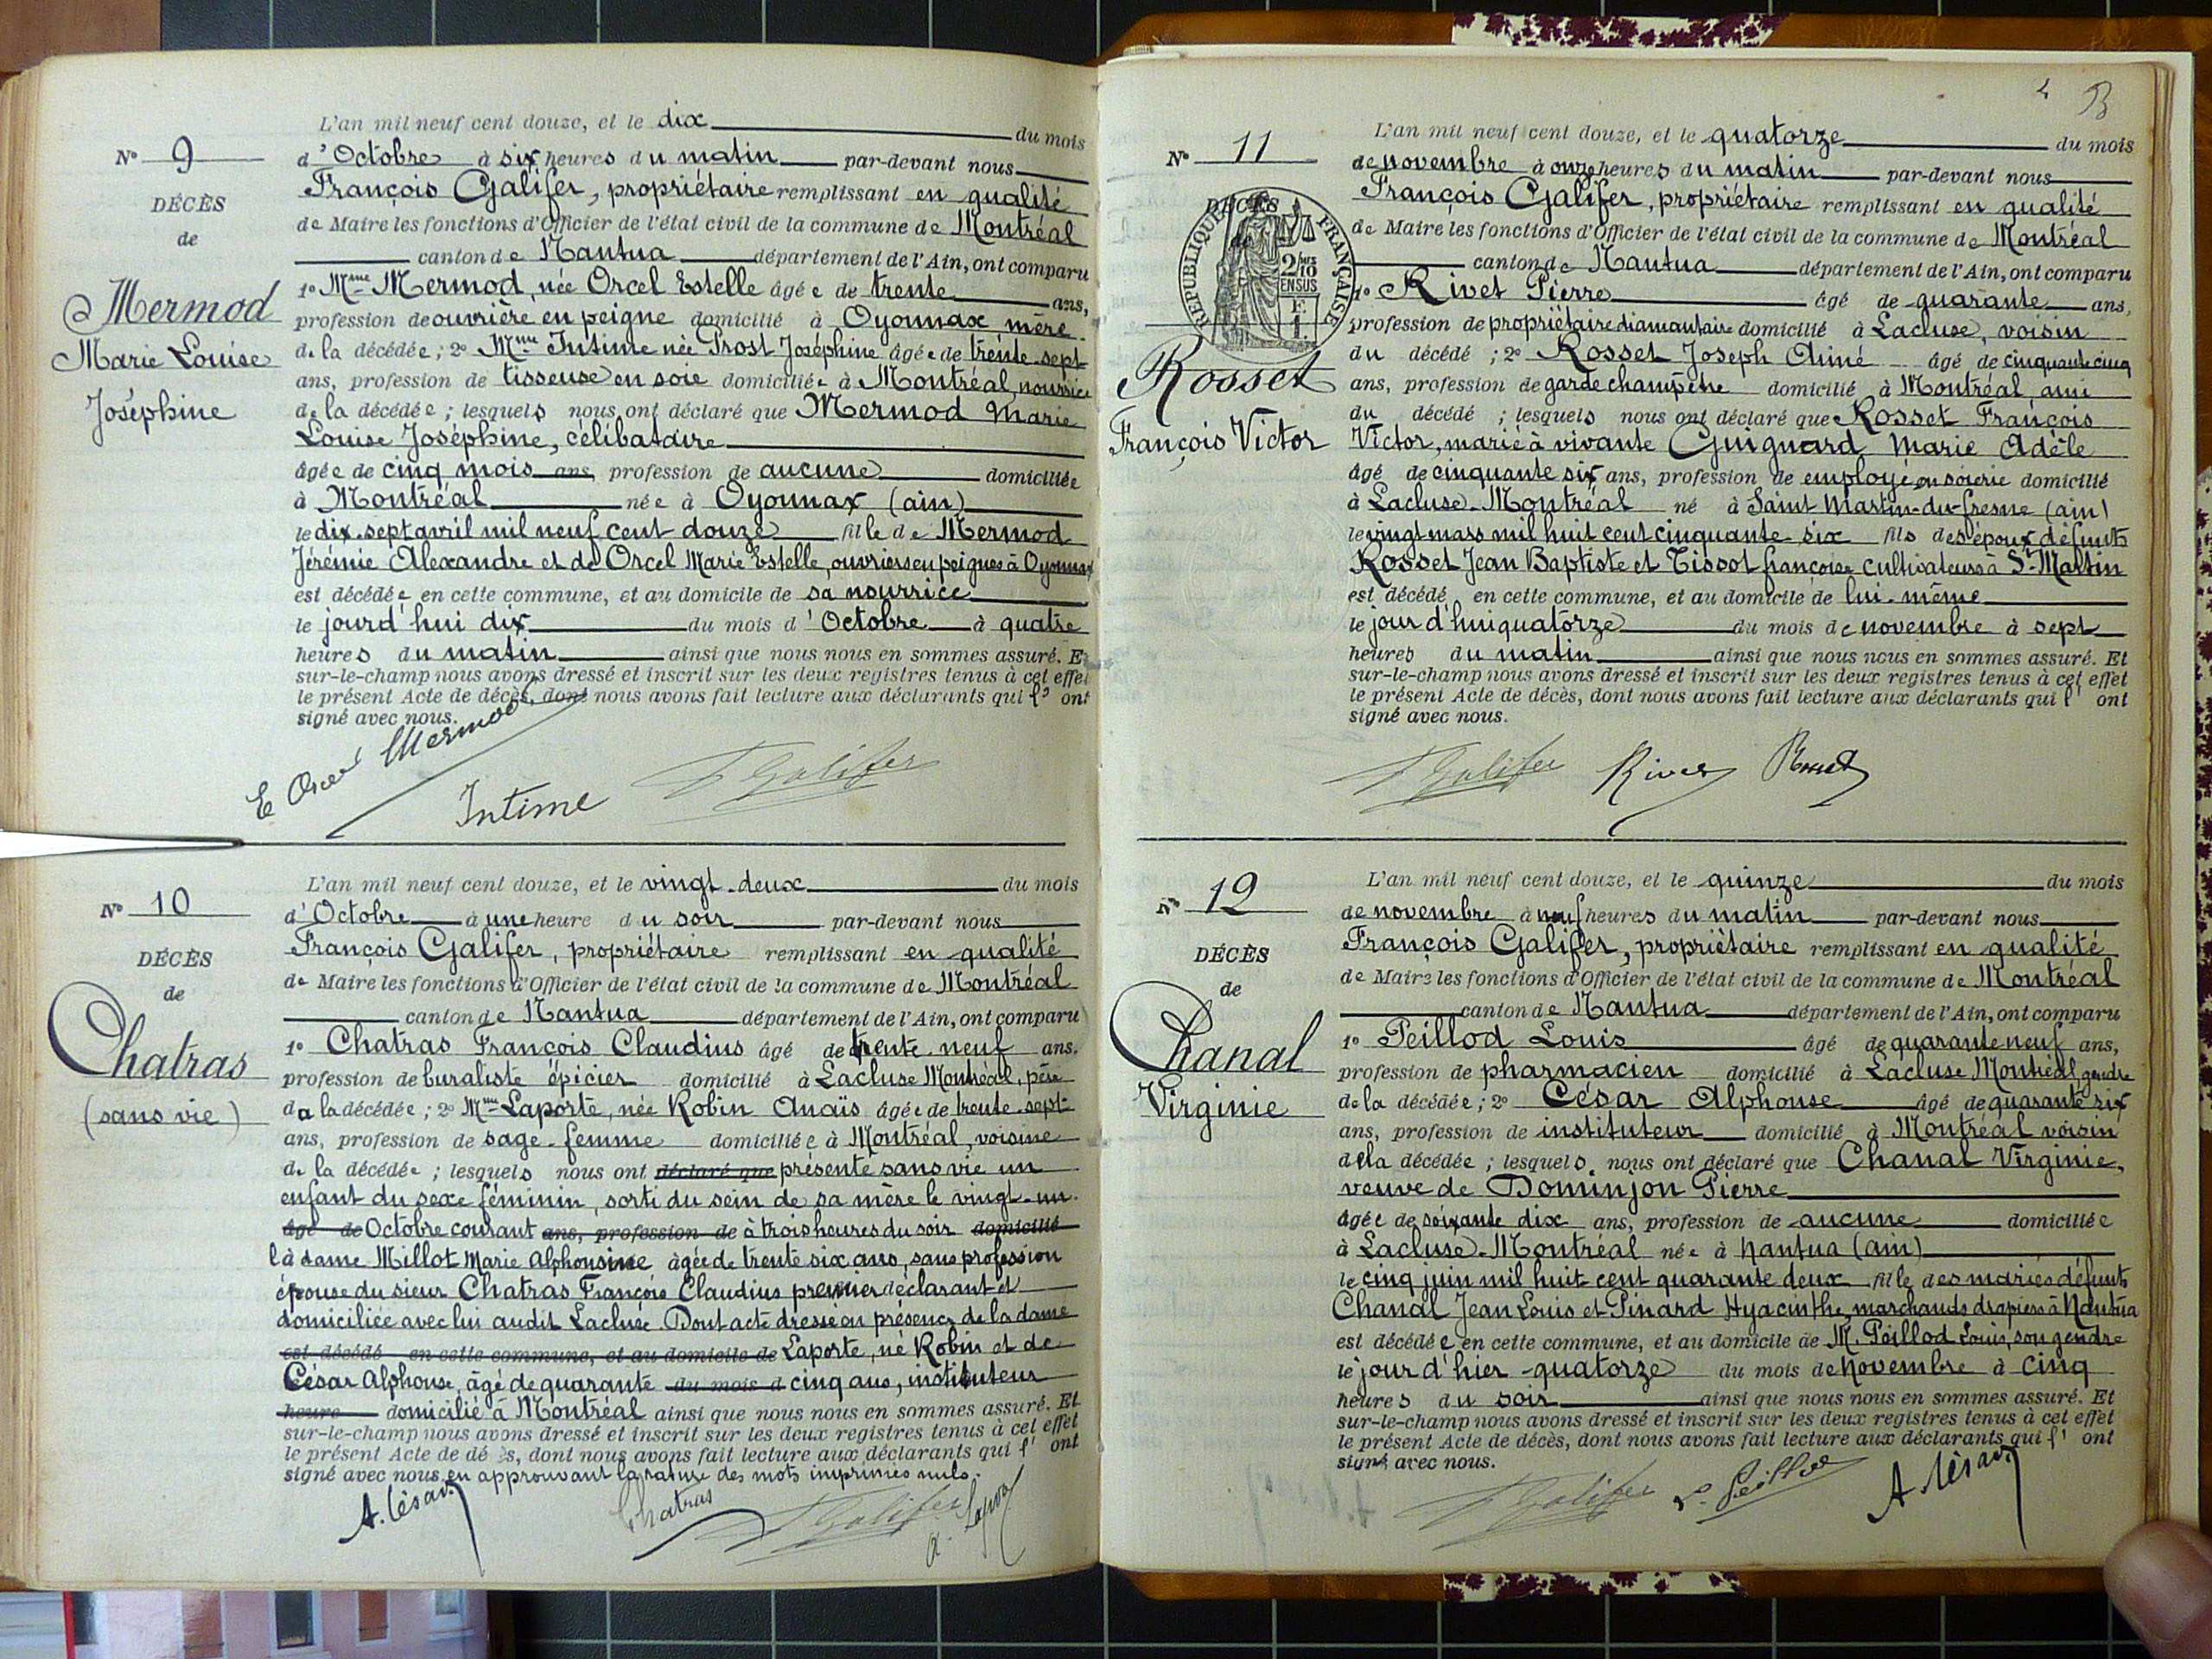 L'an mil neuf cent douze, et le dix du mois
N° 9
d'Octobre à six heures du matin par-devant nous
François Galifer, propriétaire remplissant en qualité
DÉCÈS
de Maire les fonctions d'Officier de l'état civil de la commune de Montréal
de
canton de Nantua département de l'Ain, ont comparu
1° Mme Mermod, née Orcel Estelle âgée de trente ans,
Mermod
profession de ouvrière en peigne domicilié à Oyonnax mère
Marie Louise
de la décédée ; 2° Mme Intime née Prost Joséphine âgée de trente-sept
ans, profession de tisseuse en soie domiciliée à Montréal, nourrice
Joséphine
de la décédée ; lesquels nous ont déclaré que Mermod Marie
Louise Joséphine, célibataire
âgée de cinq mois ans, profession de aucune domiciliée
à Montréal née à Oyonnax (ain)
le dix-sept avril mil neuf cent douze fille de Mermod
Jérémie Alexandre et de Orcel Marie Estelle, ouvriers en peignes à Oyonnax
est décédée en cette commune, et au domicile de sa nourrice
le jourd'hui dix du mois d'Octobre à quatre
heures du matin ainsi que nous nous en sommes assuré. Et
sur-le-champ nous avons dressé et inscrit sur les deux registres tenus à cet effet
le présent Acte de décès, dont nous avons fait lecture aux déclarants qui l' ont
signé avec nous.
E Orcel Mermod
Intime
F Galifer
L'an mil neuf cent douze, et le vingt-deux du mois
N° 10
d'Octobre à une heure du soir par-devant nous
François Galifer, propriétaire remplissant en qualité
DÉCÈS
de Maire les fonctions d'Officier de l'état civil de la commune de Montréal
de
canton de Nantua département de l'Ain, ont comparu
Chatras
1° Chatras François Claudius âgé de trente-neuf ans,
profession de buraliste épicier domicilié à Lacluse Montréal, père
(sans vie)
de la décédée ; 2° Mme Laporte, née Robin Anaïs âgée de trente-sept
ans, profession de sage-femme domiciliée à Montréal, voisine
de la décédée ; lesquels nous ont déclaré que présenté sans vie un
enfant du sexe féminin, sorti du sein de sa mère le vingt-un
âgé de Octobre courant ans, profession de à trois heures du soir domicilié
la dame Millot Marie Alphonsine âgée de trente six ans, sans profession
épouse du sieur Chatras François Claudius premier déclarant et
domiciliée avec lui audit Lacluse. Dont acte dressé en présence de la dame
est décédé en cette commune, et au domicile de Laporte, né Robin et de
César Alphonse, âgé de quarante du mois d cinq ans, instituteur
heure domicilié à Montréal ainsi que nous nous en sommes assuré. Et
sur-le-champ nous avons dressé et inscrit sur les deux registres tenus à cet effet
le présent Acte de dé ès, dont nous avons fait lecture aux déclarants qui l' ont
signé avec nous en approuvant la rature des mots imprimés nuls.
A. César
Chatras
F Galifer
L'an mil neuf cent douze, et le quatorze du mois
N° 11
de novembre à onze heures du matin par-devant nous
François Galifer, propriétaire remplissant en qualité
DÉCÈS
de
RÉPUBLIQUE FRANÇAISE
2/10 EN SUS
de Maire les fonctions d'Officier de l'état civil de la commune de Montréal
canton de Nantua département de l'Ain, ont comparu
1° Rivet Pierre âgé de quarante ans,
profession de propriétaire diamantaire domicilié à Lacluse, voisin
Rosset
du décédé ; 2° Rosset Joseph Aimé âgé de cinquante cinq
ans, profession de garde champêtre domicilié à Montréal, ami
du décédé ; lesquels nous ont déclaré que Rosset François
François Victor
Victor, marié à vivante Guignard Marie Adèle
âgé de cinquante six ans, profession de employé en soierie domicilié
à Lacluse-Montréal né à Saint Martin-du-fresne (ain)
le vingt mars mil huit cent cinquante-six fils des époux défunts
Rosset Jean Baptiste et Tissot françoise cultivateurs à St Martin
est décédé en cette commune, et au domicile de lui-même
le jour d'hui quatorze du mois de novembre à sept
heures du matin ainsi que nous nous en sommes assuré. Et
sur-le-champ nous avons dressé et inscrit sur les deux registres tenus à cet effet
le présent Acte de décès, dont nous avons fait lecture aux déclarants qui l' ont
signé avec nous.
F Galifer Rivet Rosset
L'an mil neuf cent douze, et le quinze du mois
N° 12
de novembre à neuf heures du matin par-devant nous
François Galifer, propriétaire remplissant en qualité
DÉCÈS
de Maire les fonctions d'Officier de l'état civil de la commune de Montréal
de
canton de Nantua département de l'Ain, ont comparu
Chanal
1° Peillod Louis âgé de quarante neuf ans,
profession de pharmacien domicilié à Lacluse Montréal, gendre
Virginie
de la décédée ; 2° César Alphonse âgé de quarante six
ans, profession de instituteur domicilié à Montréal voisin
de la décédée ; lesquels nous ont déclaré que Chanal Virginie,
veuve de Dominjon Pierre
âgée de soixante dix ans, profession de aucune domiciliée
à Lacluse-Montréal née à Nantua (ain)
le cinq juin mil huit cent quarante deux fille des mariés défunts
Chanal Jean Louis et Pinard Hyacinthe, marchands drapiers à Nantua
est décédée en cette commune, et au domicile de M. Peillod Louis, son gendre
le jour d'hier quatorze du mois de novembre à cinq
heures du soir ainsi que nous nous en sommes assuré. Et
sur-le-champ nous avons dressé et inscrit sur les deux registres tenus à cet effet
le présent Acte de décès, dont nous avons fait lecture aux déclarants qui l' ont
signé avec nous.
F Galifer L. Peillod A. César